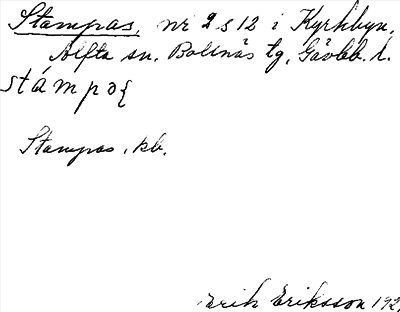 Stampas, nr 2 s 12 i Kyrkbyn,
Alfta sn, Bollnäs tg, Gävleb. l.
stámpɔʃ
Stampas, kb.
Erik Eriksson 192